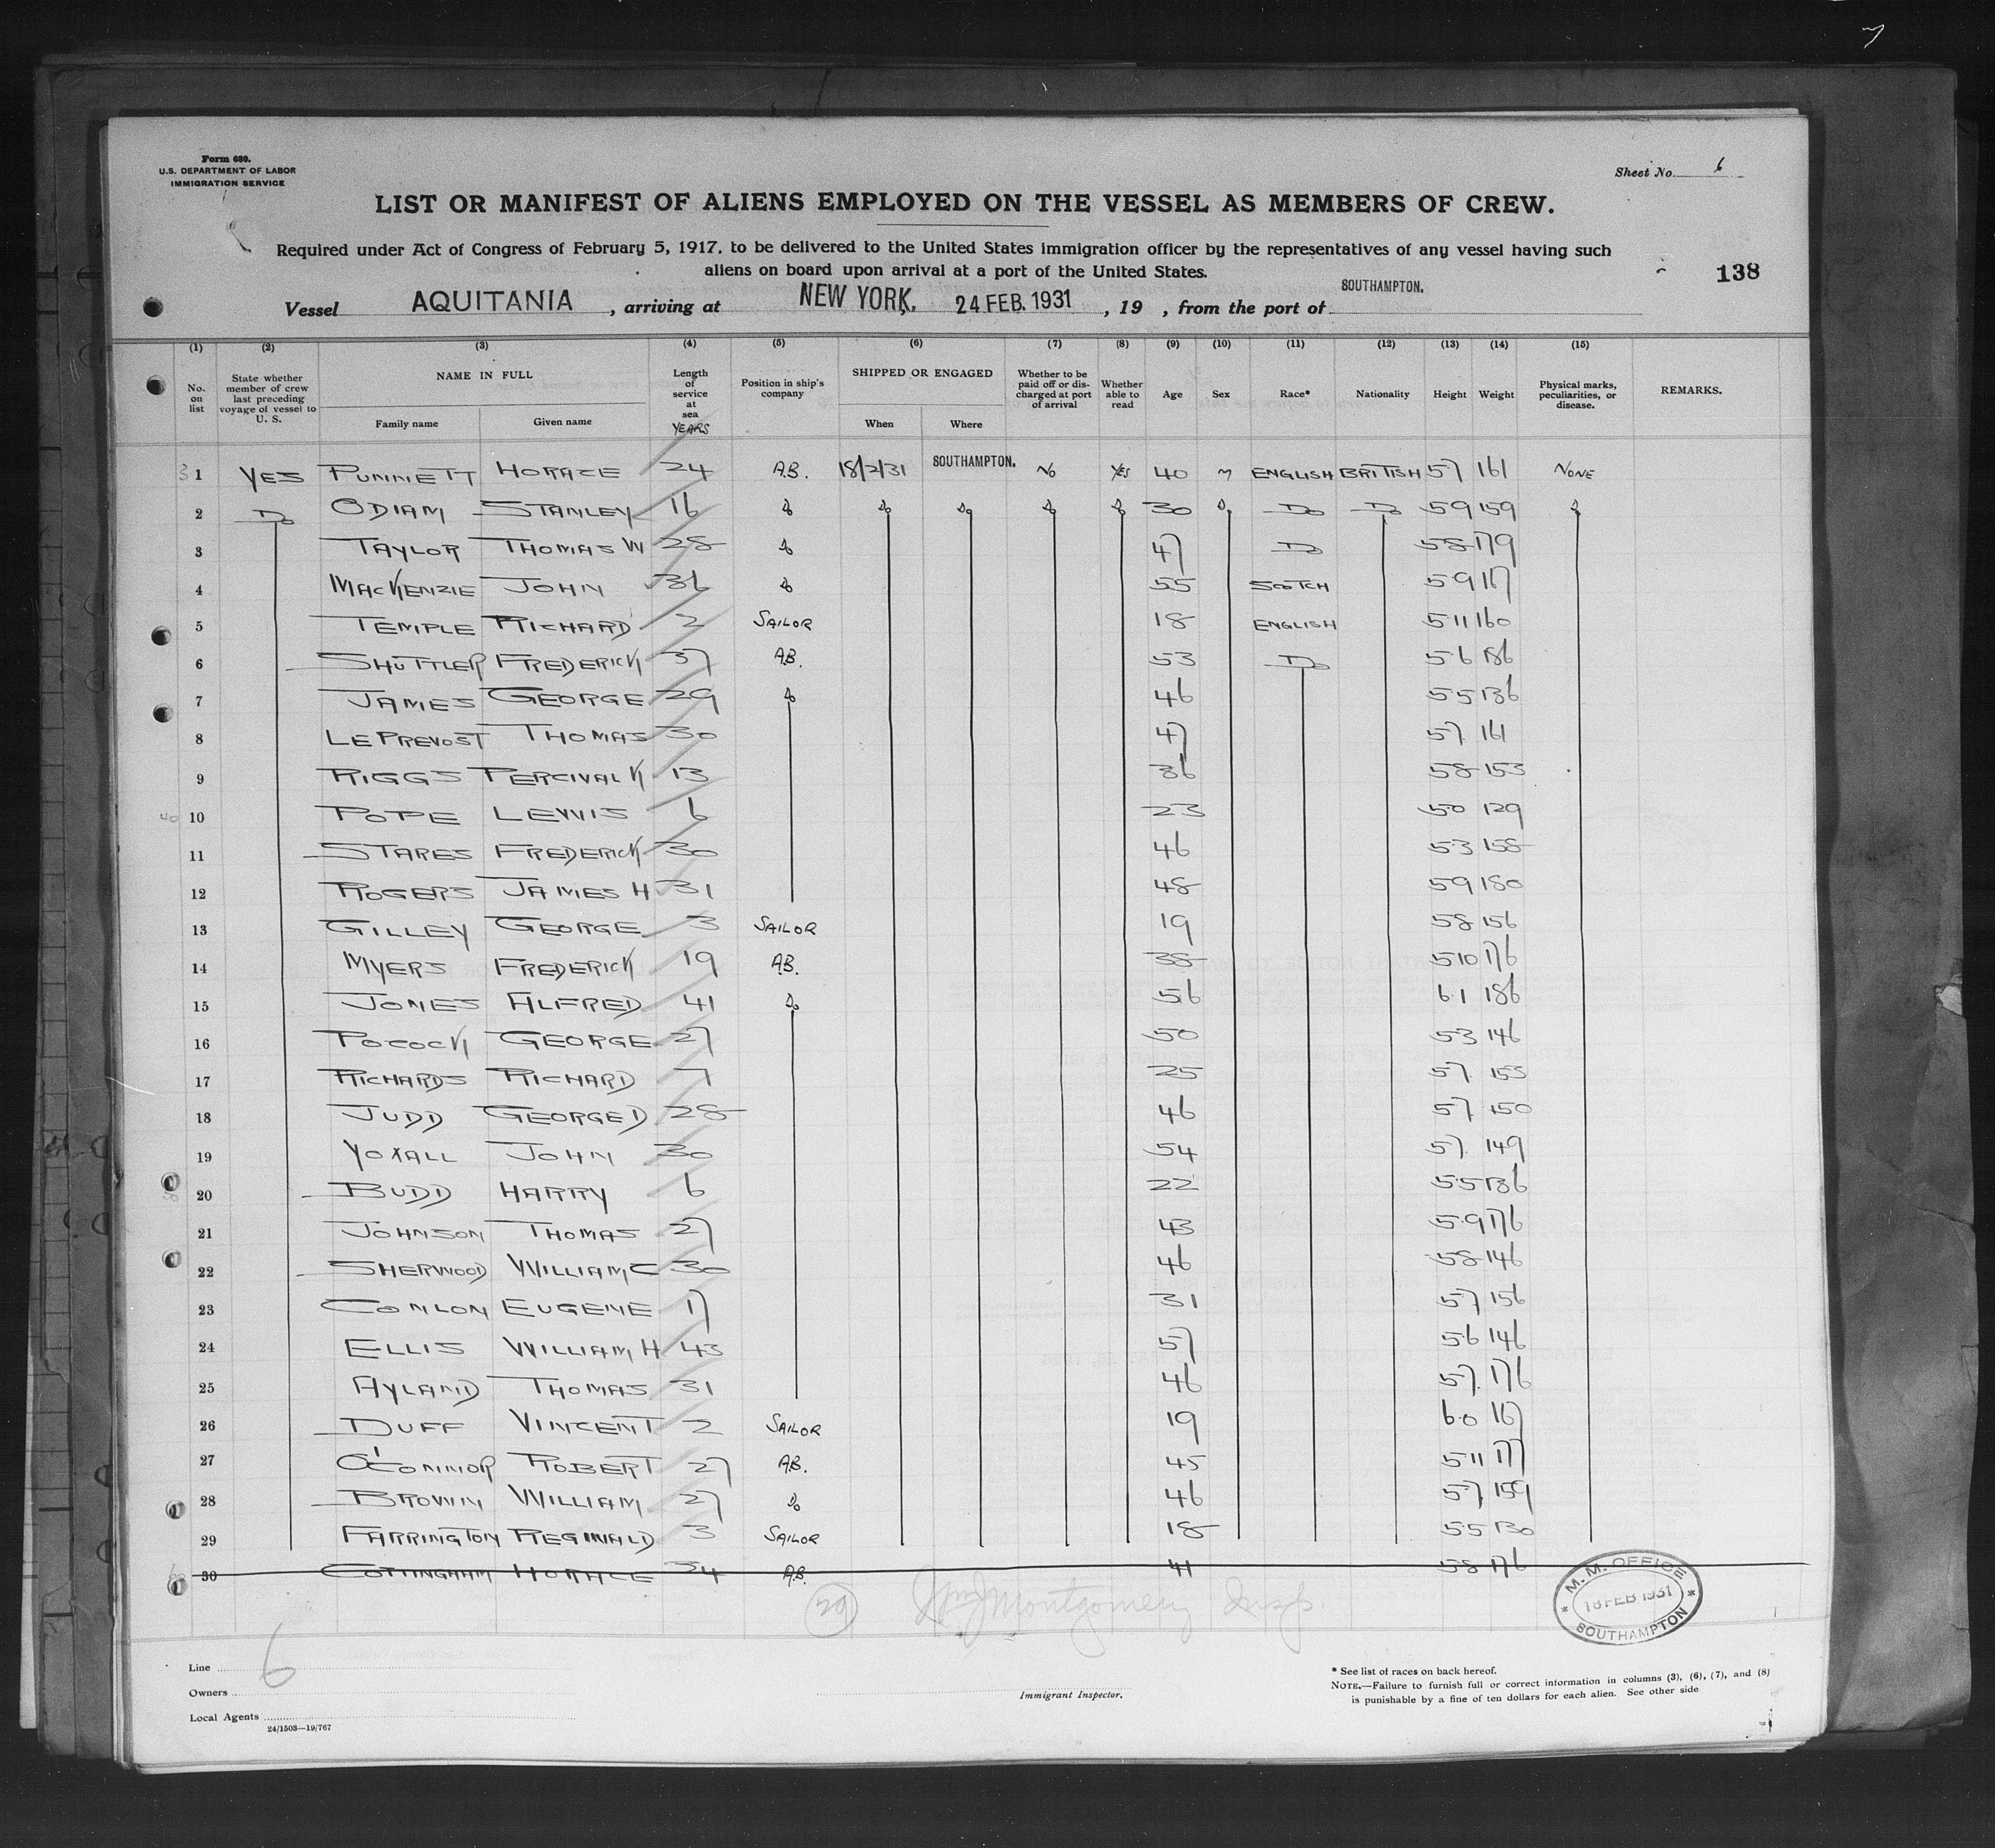 Form 680.
U.S. DEPARTMENT OF LABOR
IMMIGRATION SERVICE
Sheet No. 6
LIST OR MANIFEST OF ALIENS EMPLOYED ON THE VESSEL AS MEMBERS OF CREW.
Required under Act of Congress of February 5, 1917, to be delivered to the United States immigration officer by the representatives of any vessel having such
aliens on board upon arrival at a port of the United States.
138
Vessel AQUITANIA, arriving at NEW YORK, 24 FEB. 1931, 19 , from the port of SOUTHAMPTON.
(1) (2) (3) (4) (5) (6) (7) (8) (9) (10) (11) (12) (13) (14) (15)
No. on list State whether member of crew last preceding voyage of vessel to U. S. NAME IN FULL Family name Given name Length of service at sea YEARS Position in ship's company SHIPPED OR ENGAGED When Where Whether to be paid off or discharged at port of arrival Whether able to read Age Sex Race* Nationality Height Weight Physical marks, peculiarities, or disease. REMARKS.
1 YES PUNNETT HORACE 24 A.B. 18/2/31 SOUTHAMPTON. No YES 40 M ENGLISH BRITISH 57 161 NONE
2 Do ODIAM STANLEY 16 Do Do Do Do Do 30 Do Do Do 59 159 Do
3 TAYLOR THOMAS W 28 Do 47 Do 58 179
4 MACKENZIE JOHN 36 Do 55 SCOTCH 59 167
5 TEMPLE RICHARD 2 SAILOR 18 ENGLISH 511 160
6 SHUTTLER FREDERICK 37 A.B. 53 Do 56 186
7 JAMES GEORGE 29 Do 46 55 136
8 LE PREVOST THOMAS 30 47 57 161
9 RIGGS PERCIVAL K 13 36 58 153
10 POPE LEWIS 6 23 50 129
11 STARES FREDERICK 30 46 53 158
12 ROGERS JAMES H 31 48 59 180
13 GILLEY GEORGE 3 SAILOR 19 58 156
14 MYERS FREDERICK 19 A.B. 38 510 176
15 JONES ALFRED 41 Do 56 6.1 186
16 POCOCK GEORGE 27 50 53 146
17 RICHARDS RICHARD 7 25 57 153
18 JUDD GEORGE D 28 46 57 150
19 YOXALL JOHN 30 54 57 149
20 BUDD HARRY 6 22 55 136
21 JOHNSON THOMAS 27 43 59 176
22 SHERWOOD WILLIAM C 30 46 58 146
23 CONLON EUGENE 17 31 57 156
24 ELLIS WILLIAM H 43 57 56 146
25 AYLAND THOMAS 31 46 57 176
26 DUFF VINCENT 2 SAILOR 19 6.0 167
27 O'CONNOR ROBERT 27 A.B. 45 511 177
28 BROWN WILLIAM 27 Do 46 57 159
29 FARRINGTON REGINALD 3 SAILOR 18 55 130
30 COTTINGHAM HORACE 34 A.B. 41 58 176
29 Wm J Montgomery Insp.
M. M. OFFICE
18 FEB 1931
SOUTHAMPTON
6
Line
Owners
Local Agents
24/1503—19/767
Immigrant Inspector.
* See list of races on back hereof.
NOTE.—Failure to furnish full or correct information in columns (3), (6), (7), and (8)
is punishable by a fine of ten dollars for each alien. See other side